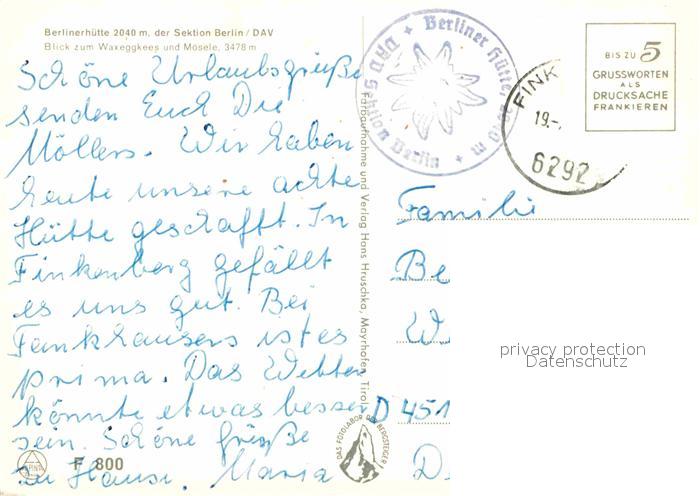 Berlinerhütte 2040 m, der Sektion Berlin / DAV
Blick zum Waxeggkees und Mösele, 3478 m
Schöne Urlaubsgrüße
senden Euch Die
Möllers. Wir haben
heute unsere achte
Hütte geschafft. In
Finkenberg gefällt
es uns gut. Bei
Fankhausers ist es
prima. Das Wetter
könnte etwas besser
sein. Schöne Grüße
zu Hause. Maria
F 800
Farbaufnahme und Verlag Hans Hruschka, Mayrhofen, Tirol
DAS FOTOLABOR DER BERGSTEIGER
Berliner Hütte, 2040 m + Sektion Berlin DAV +
FINK
19.-
6292
BIS ZU 5
GRUSSWORTEN
ALS
DRUCKSACHE
FRANKIEREN
Familie
Be
W
D 451
D
privacy protection
Datenschutz